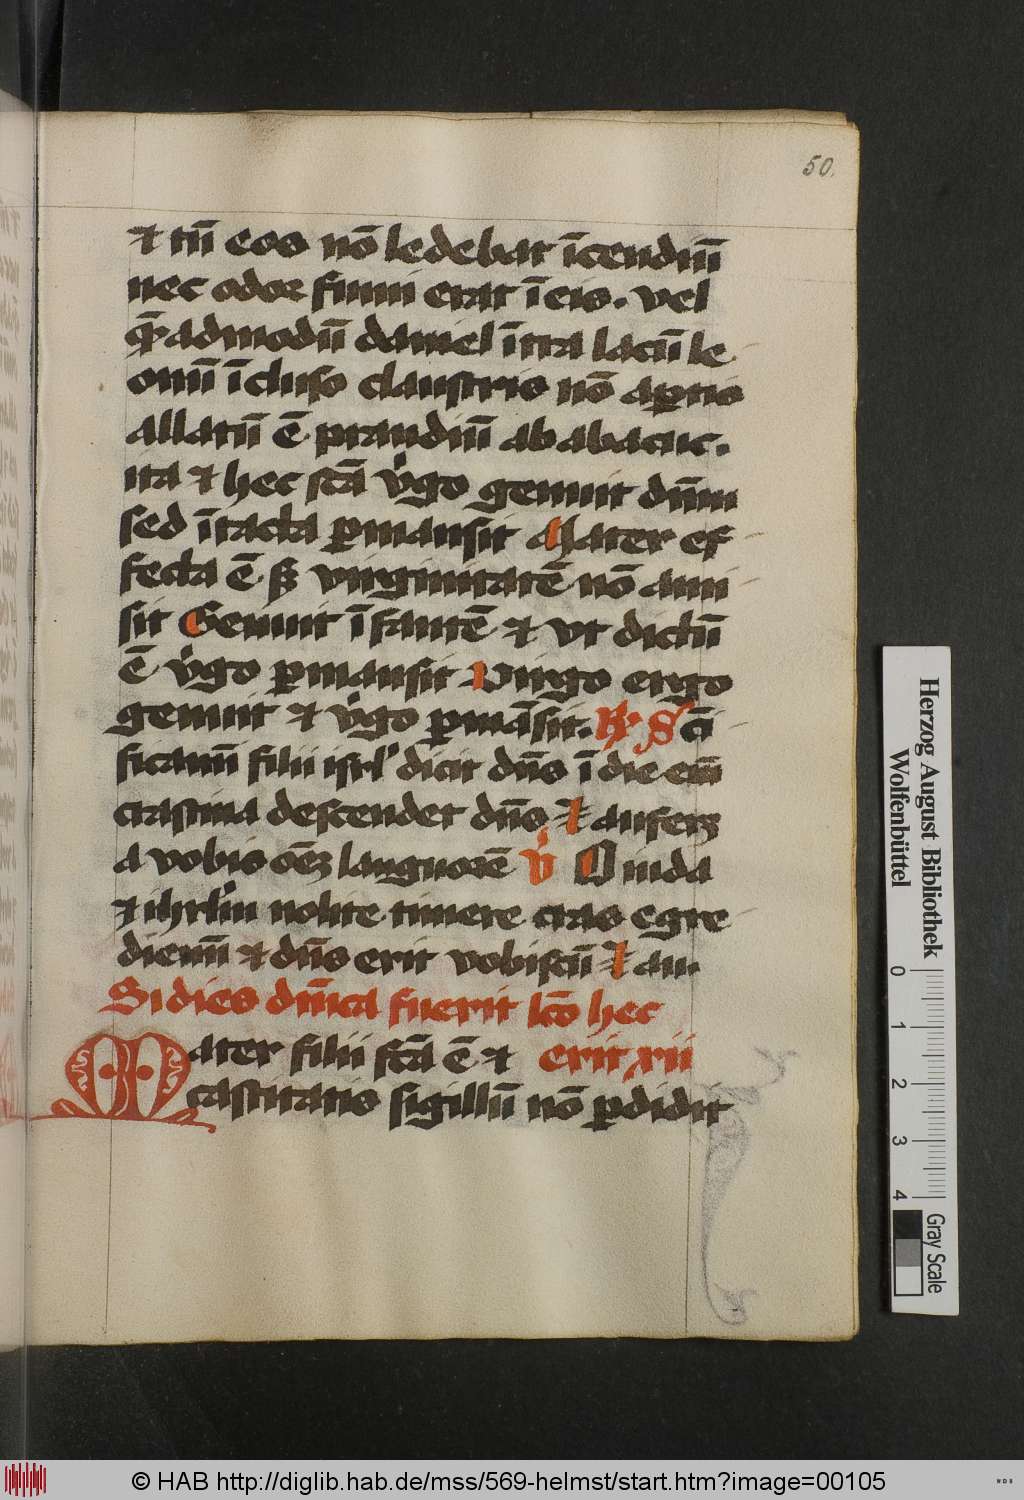 50.
et tū eos nō ledebat īcendiū
nec odor fumi erat ī eis. vel
q̄admodū daniel ītra lacū le
onū īcluso claustris nō aptis
allatū ē prandiū ab abacuc.
ita et hec scā v̓go genuit dnm̄
sed ītacta pmansit Mater ef
fecta ē sꝫ virginitatē nō ami
sit Genuit īfantē et vt dictū
ē v̓go pmansit Virgo ergo
genuit et v̓go pmāsit. R̸ Sc̄i
ficamī filii isrl̓ dicit dn̄s ī die em̄
crastina descendet dn̄s Et auferꝫ
a vobis oēꝫ languorē V̓ O iuda
et ihrl̓m nolite timere cras egre
diemī et dn̄s erit vobiscū Et au.
Si dies dn̄ica fuerit lc̄o hec
Mater filii scā ē et erit xii
castitatis sigillū nō pdidit
Herzog August Bibliothek
Wolfenbüttel
0 1 2 3 4
Gray Scale
© HAB http://diglib.hab.de/mss/569-helmst/start.htm?image=00105